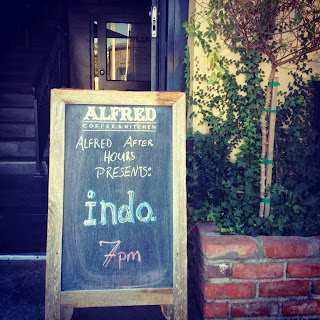 ALFRED
COFFEE & KITCHEN
ALFRED AFTER
HOURS
PRESENTS:
indo.
7pm